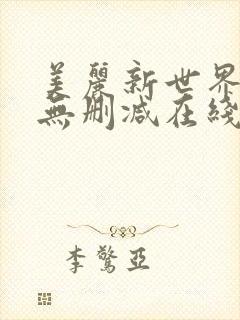 美麗新世界
無刪減在綫
李驚亞